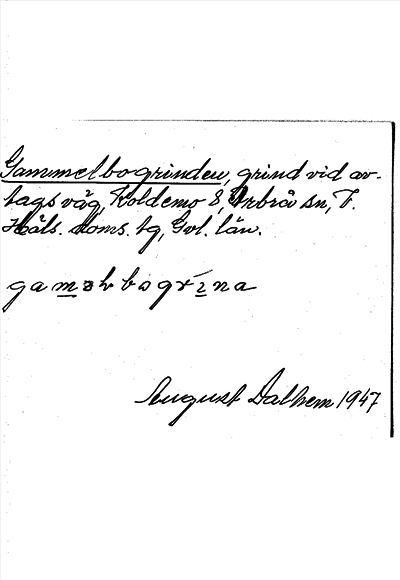 Gammelbogrinden, grind vid av-
tags väg, Koldemo 8, Arbrå sn, V.
Häls. doms. tg, Gvl. län.
August Dalhem 1947